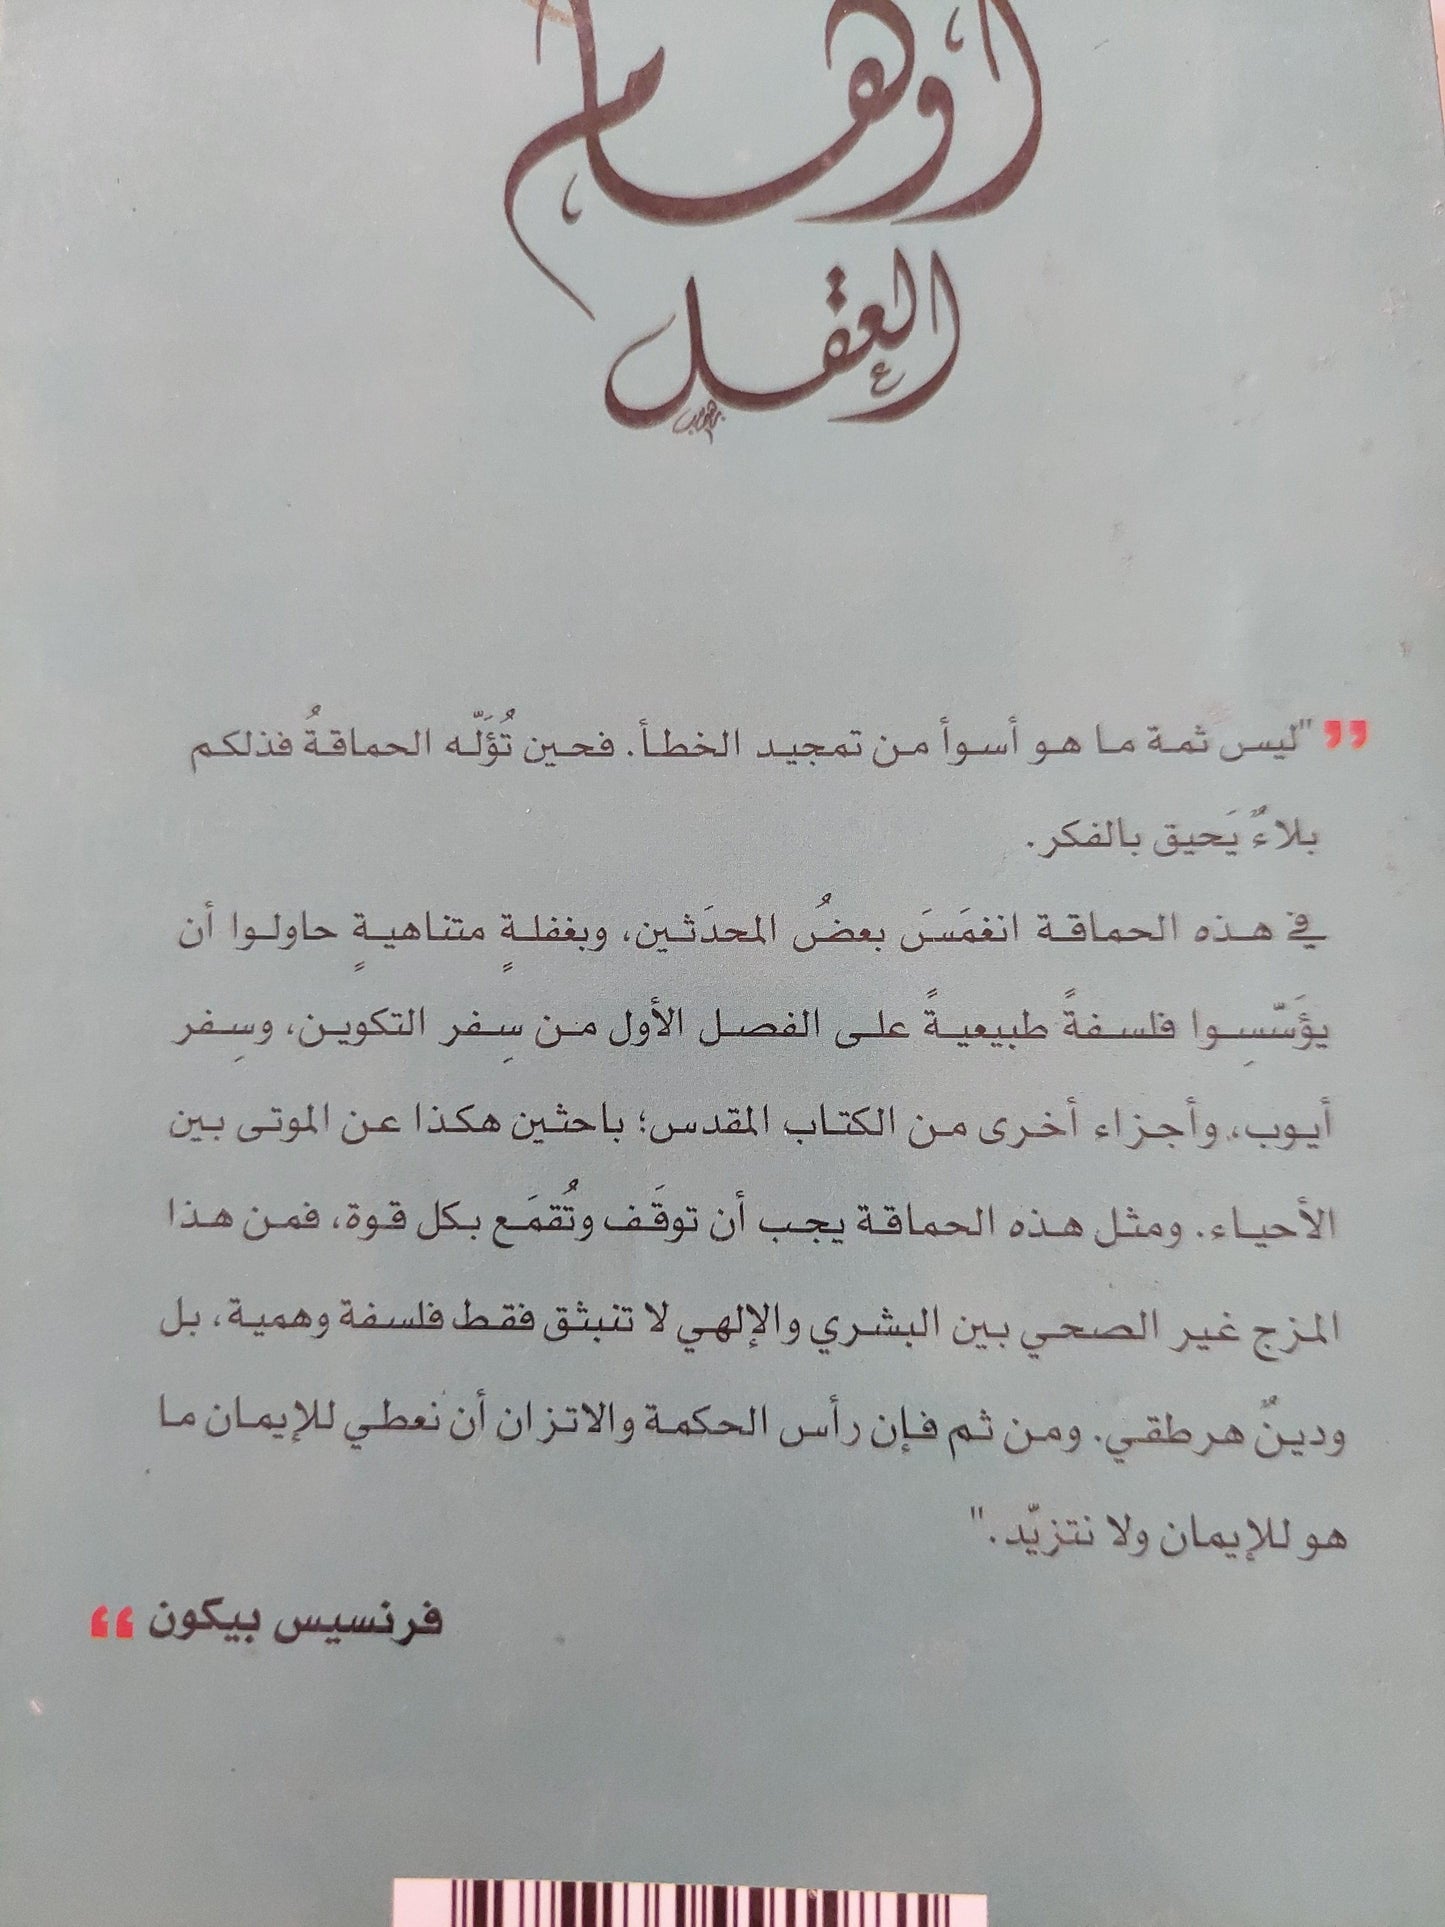 أوهام
العقل
"ليس ثمة ما هو أسوأ من تمجيد الخطأ. فحين تُؤَلّه الحماقةُ فذلكم
بلاءٌ يَحيق بالفكر.
في هذه الحماقة انغمَسَ بعضُ المحدَثين، وبغفلةٍ متناهيةٍ حاولوا أن
يؤَسّسِوا فلسفةً طبيعيةً على الفصل الأول من سِفر التكوين، وسِفر
أيوب، وأجزاء أخرى من الكتاب المقدس؛ باحثين هكذا عن الموتى بين
الأحياء. ومثل هذه الحماقة يجب أن توقَف وتُقمَع بكل قوة، فمن هذا
المزج غير الصحي بين البشري والإلهي لا تنبثق فقط فلسفة وهمية، بل
ودينٌ هرطقي. ومن ثم فإن رأس الحكمة والاتزان أن نعطي للإيمان ما
هو للإيمان ولا نتزيّد."
فرنسيس بيكون